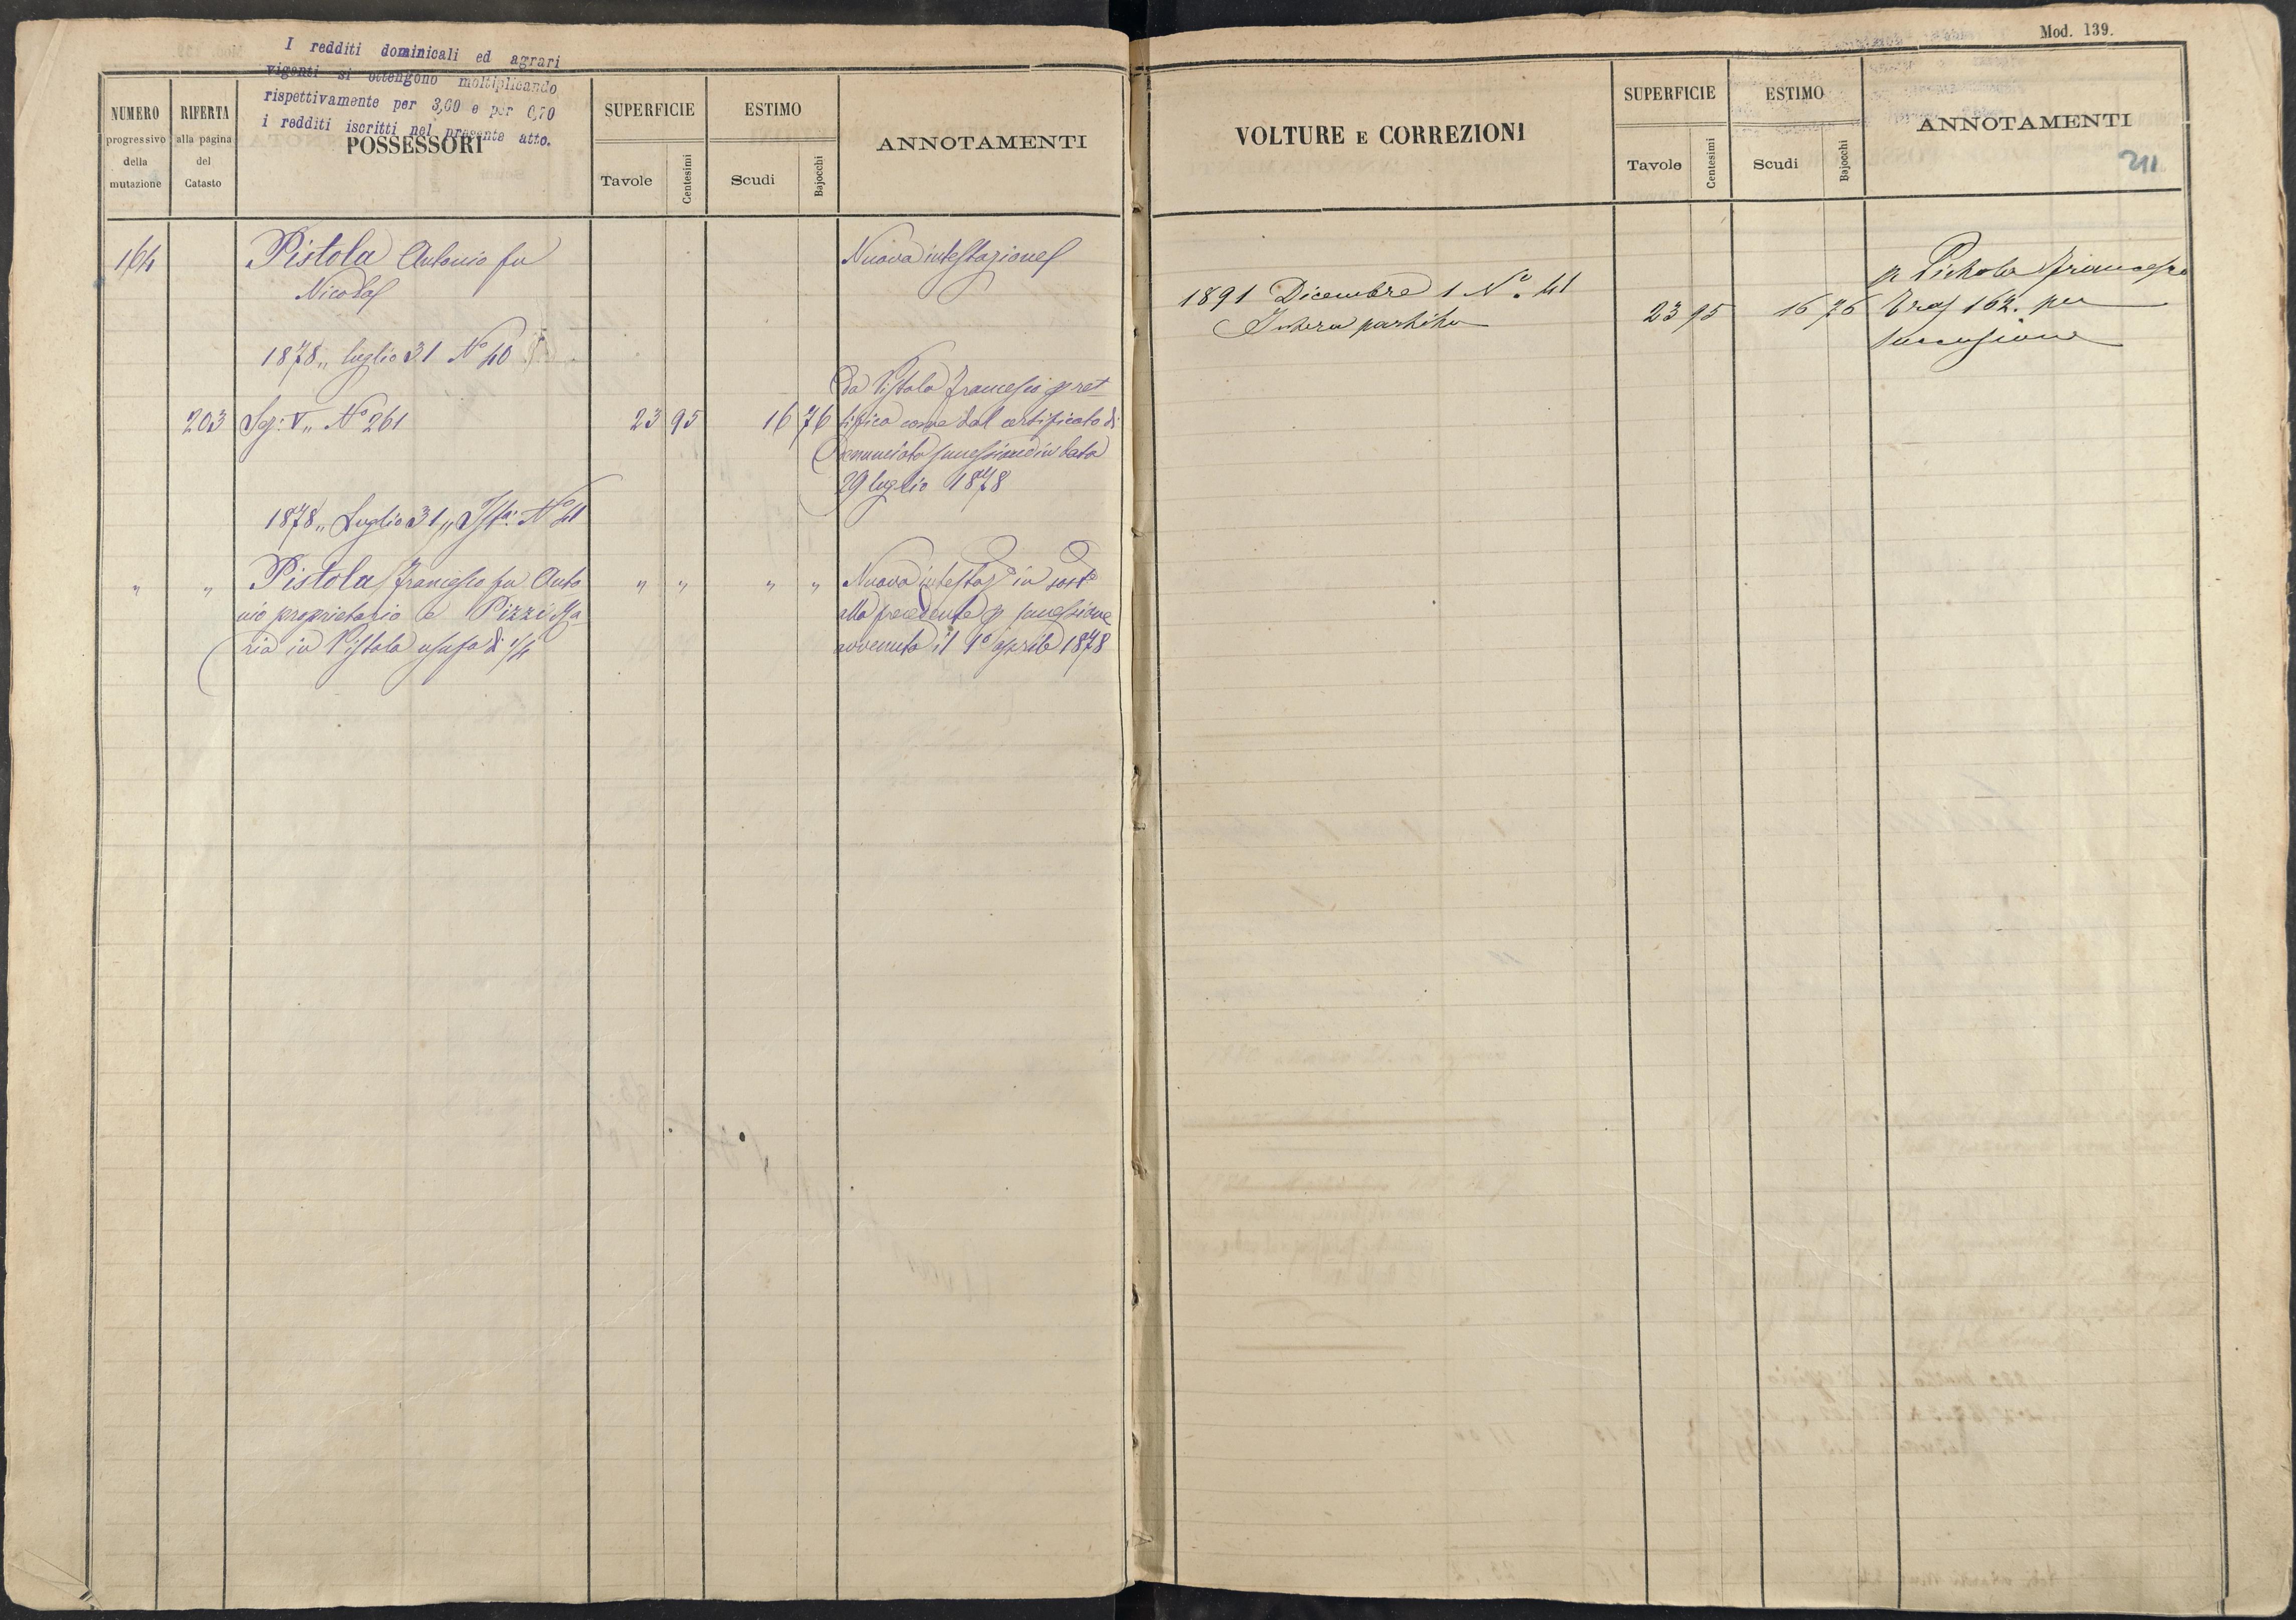 I redditi dominicali ed agrari
vigenti si ottengono moltiplicando
rispettivamente per 3,00 e per 0,70
i redditi iscritti nel presente atto.
NUMERO
progressivo
della
mutazione
RIFERTA
alla pagina
del
Catasto
POSSESSORI
SUPERFICIE
Tavole
Centesimi
ESTIMO
Scudi
Bajocchi
ANNOTAMENTI
164 Pistola Antonio fu Nuova intestazione
Nicola
1878,, luglio 31 Nº 40
Da Pistola Francesco p ret
203 Sez: V,, Nº 261 23 95 16 76 tifica come dal certificato di
denunciata successione in data
29 luglio 1878
1878,, Luglio 31,, Nº 41
" " Pistola Francesco fu Anto " " " " Nuova intestaz: in sost:
nio proprietario e Pizzi Ma alla precedente p successione
ria in Pistola usufº di 1/4 avvenuta il 1º aprile 1878
Mod. 139.
VOLTURE E CORREZIONI
SUPERFICIE
Tavole
Centesimi
ESTIMO
Scudi
Bajocchi
ANNOTAMENTI
211
p Pistola Francesco
1891 Dicembre 1 Nº. 41
Intera partita 23 95 16 76 162. per
successione